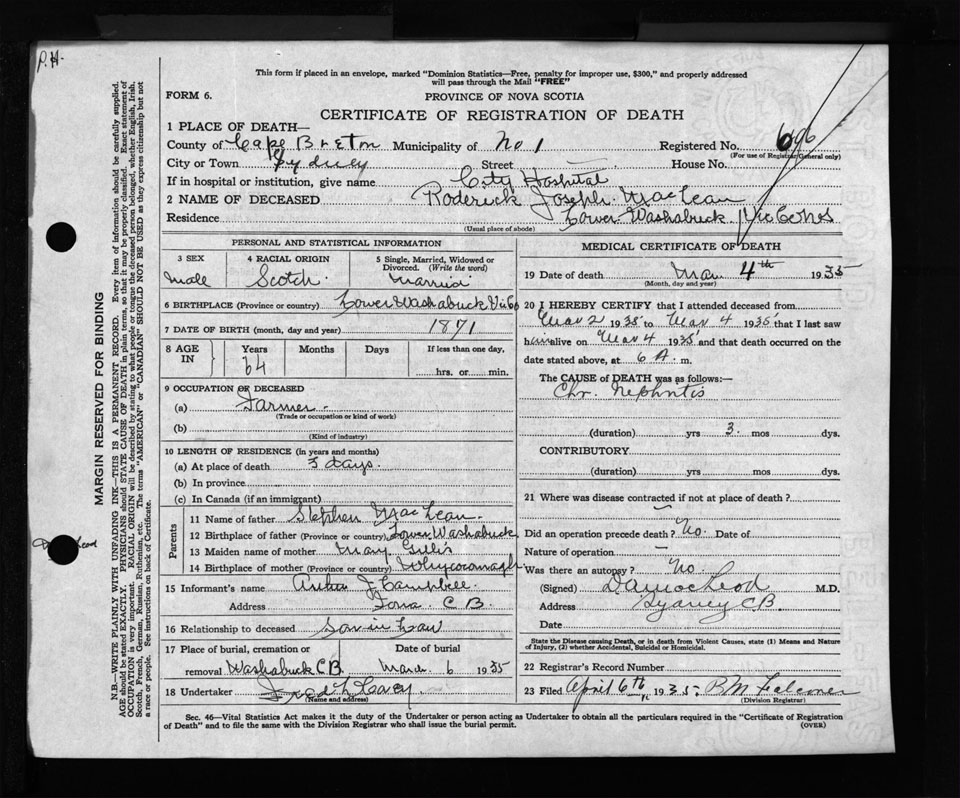 P.H.
This form if placed in an envelope, marked "Dominion Statistics—Free, penalty for improper use, $300," and properly addressed
will pass through the Mail "FREE"
FORM 6.
PROVINCE OF NOVA SCOTIA
CERTIFICATE OF REGISTRATION OF DEATH
1 PLACE OF DEATH—
County of Cape Breton Municipality of No 1 Registered No. 696
(For use of Registrar General only)
City or Town Sydney Street — House No.
If in hospital or institution, give name City Hospital
2 NAME OF DECEASED Roderick Joseph MacLean
Residence Lower Washabuck Vic Co NS
(Usual place of abode)
PERSONAL AND STATISTICAL INFORMATION
3 SEX
Male
4 RACIAL ORIGIN
Scotch
5 Single, Married, Widowed or Divorced. (Write the word)
Married
6 BIRTHPLACE (Province or country) Lower Washabuck Vic Co
7 DATE OF BIRTH (month, day and year) 1871
8 AGE IN Years Months Days If less than one day,
64
hrs. or min.
9 OCCUPATION OF DECEASED
(a) Farmer
(Trade or occupation or kind of work)
(b)
(Kind of industry)
10 LENGTH OF RESIDENCE (in years and months)
(a) At place of death 3 days.
(b) In province
(c) In Canada (if an immigrant)
Parents
11 Name of father Stephen MacLean
12 Birthplace of father (Province or country) Lower Washabuck
13 Maiden name of mother Mary Gillis
14 Birthplace of mother (Province or country) Whycocomagh
15 Informant's name J Campbell
Address Iona C B
16 Relationship to deceased Son in Law
17 Place of burial, cremation or Date of burial
removal Washabuck C B March 6 1935
18 Undertaker
(Name and address)
MEDICAL CERTIFICATE OF DEATH
19 Date of death Mar 4th 1935
(Month, day and year)
20 I HEREBY CERTIFY that I attended deceased from
Mar 2 1935 to Mar 4 1935 that I last saw
him alive on Mar 4 1935 and that death occurred on the
date stated above, at 6 A. m.
The CAUSE OF DEATH was as follows:—
Chr. Nephritis
(duration) yrs 3 mos dys.
CONTRIBUTORY
(duration) yrs mos dys.
21 Where was disease contracted if not at place of death?
—
Did an operation precede death? No. Date of
Nature of operation —
Was there an autopsy? No.
(Signed) MacLeod M.D.
Address Sydney C B.
Date
State the Disease causing Death, or in death from Violent Causes, state (1) Means and Nature
of Injury, (2) whether Accidental, Suicidal or Homicidal.
22 Registrar's Record Number
23 Filed April 6th 1935. B M Falconer
(Division Registrar)
Sec. 46—Vital Statistics Act makes it the duty of the Undertaker or person acting as Undertaker to obtain all the particulars required in the "Certificate of Registration
of Death" and to file the same with the Division Registrar who shall issue the burial permit.
(OVER)
MARGIN RESERVED FOR BINDING
N.B.—WRITE PLAINLY WITH UNFADING INK—THIS IS A PERMANENT RECORD. Every item of information should be carefully supplied.
AGE should be stated EXACTLY. PHYSICIANS should STATE CAUSE OF DEATH in plain terms, so that it may be properly classified. Exact statement of
OCCUPATION is very important. RACIAL ORIGIN will be described by stating to what people or tongue the deceased person belonged, whether English, Irish,
Scotch, French, German, Russian, Ruthenian, etc. The terms "AMERICAN" or "CANADIAN" SHOULD NOT BE USED as they express citizenship but not
a race or people. See instructions on back of Certificate.